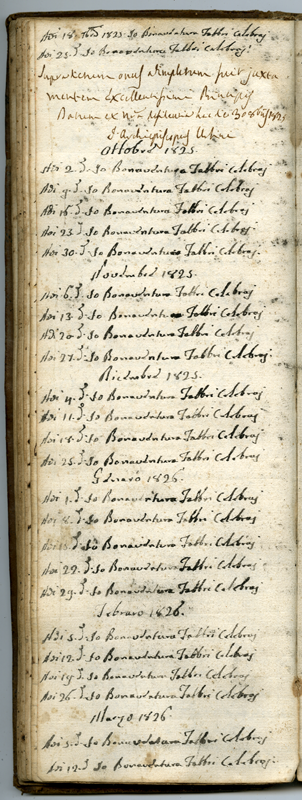 Adi 18 Sbre 1825 Io Bonaventura Fabbri Celebraj
Adi 25 d. Io Bonaventura Fabbri Celebraj
Supradictum onus adimpletum fuit juxta
mentem Excellentissimi Principis
Datum ex
Ottobre 1825.
Adi 2 d. Io Bonaventura Fabbri Celebraj
Adi 9 d. Io Bonaventura Fabbri Celebraj
Adi 16 d. Io Bonaventura Fabbri Celebraj
Adi 23 d. Io Bonaventura Fabbri Celebraj
Adi 30 d. Io Bonaventura Fabbri Celebraj
Novembre 1825.
Adi 6 d. Io Bonaventura Fabbri Celebraj
Adi 13 d. Io Bonaventura Fabbri Celebraj
Adi 20 d. Io Bonaventura Fabbri Celebraj
Adi 27 d. Io Bonaventura Fabbri Celebraj
Dicembre 1825.
Adi 4 d. Io Bonaventura Fabbri Celebraj
Adi 11 d. Io Bonaventura Fabbri Celebraj
Adi 18 d. Io Bonaventura Fabbri Celebraj
Adi 25 d. Io Bonaventura Fabbri Celebraj
Genaro 1826.
Adi 1 d. Io Bonaventura Fabbri Celebraj
Adi 8 d. Io Bonaventura Fabbri Celebraj
Adi 15 d. Io Bonaventura Fabbri Celebraj
Adi 22 d. Io Bonaventura Fabbri Celebraj
Adi 29 d. Io Bonaventura Fabbri Celebraj
Febraro 1826.
Adi 5 d. Io Bonaventura Fabbri Celebraj
Adi 12 d. Io Bonaventura Fabbri Celebraj
Adi 19 d. Io Bonaventura Fabbri Celebraj
Adi 26 d. Io Bonaventura Fabbri Celebraj
Marzo 1826.
Adi 5 d. Io Bonaventura Fabbri Celebraj
Adi 12 d. Io Bonaventura Fabbri Celebraj